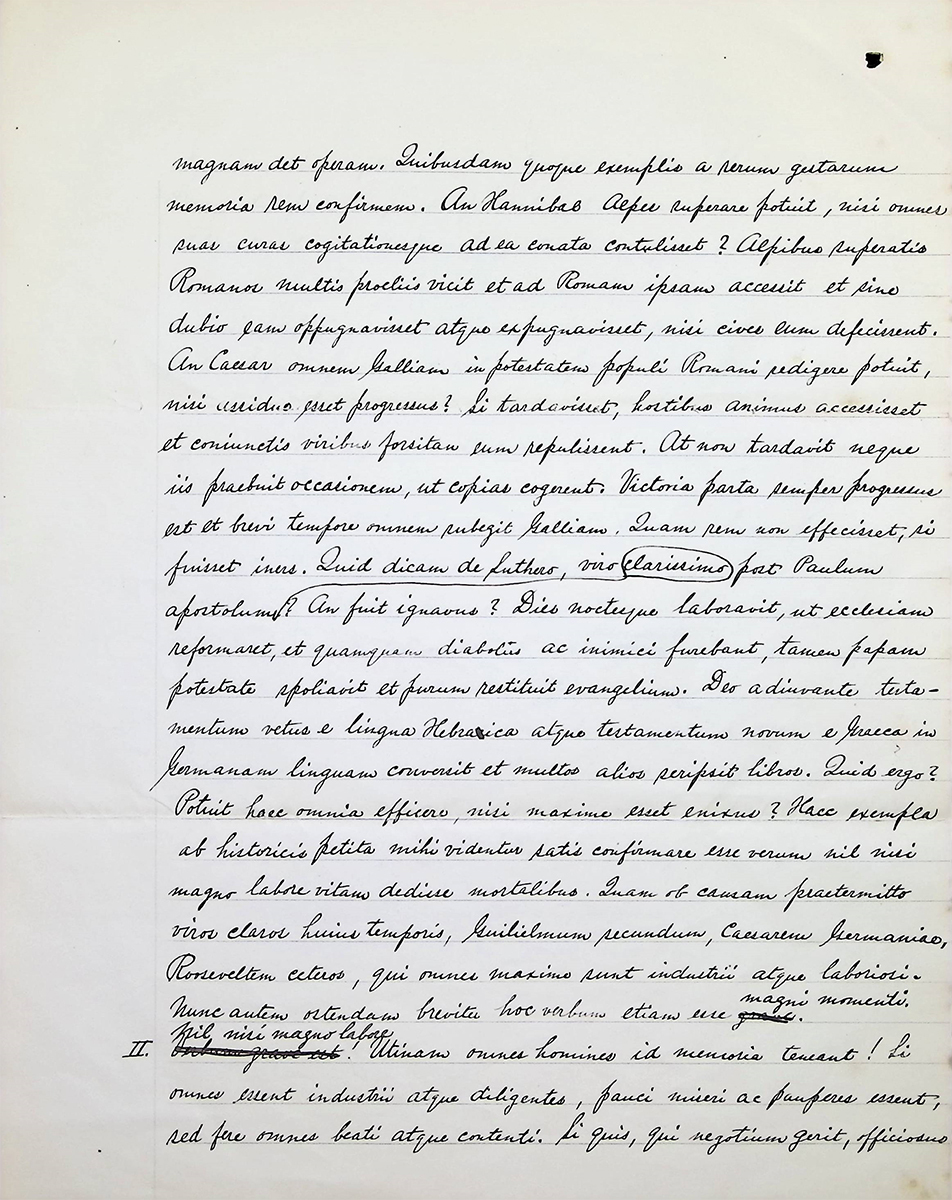 magnam det operam. Quibusdam quoque exemplis a rerum gestarum
memoria rem confirmem. An Hannibal Alpes superare potuit, nisi omnes
suas curas cogitationesque ad ea conata contulisset? Alpibus superatis
Romanos multis proeliis vicit et ad Romam ipsam accessit et sine
dubio eam oppugnavisset atque expugnavisset, nisi cives eum defecissent.
An Caesar omnem Galliam in potestatem populi Romani redigere potuit,
nisi assiduo esset progressus? Si tardavisset, hostibus animus accessisset
et coniunctis viribus forsitan eum repulissent. At non tardavit neque
iis praebuit occasionem, ut copias cogerent. Victoria parta semper progressus
est et brevi tempore omnem subegit Galliam. Quam rem non effecisset, si
fuisset iners. Quid dicam de Luthero, viro clarissimo post Paulum
apostolum? An fuit ignavus? Dies noctesque laboravit, ut ecclesiam
reformaret, et quamquam diabolus ac inimici furebant, tamen papam
potestate spoliavit et purum restituit evangelium. Deo adiuvante testa-
mentum vetus e lingua Hebraica atque testamentum novum e Graeca in
Germanam linguam conversit et multos alios scripsit libros. Quid ergo?
Potuit haec omnia efficere, nisi maxime esset enixus? Haec exempla
ab historicis petita mihi videntur satis confirmare esse verum nil nisi
magno labore vitam dedisse mortalibus. Quam ob causam praetermitto
viros claros huius temporis, Guilielmum secundum, Caesarem Germaniae,
Rooseveltem ceteros, qui omnes maxime sunt industrii atque laboriosi.
magni momenti.
Nunc autem ostendam breviter hoc verbum etiam esse grave.
Nil nisi magno labore
II. verbum grave est! Utinam omnes homines id memoria teneant! Si
omnes essent industrii atque diligentes, pauci miseri ac pauperes essent,
sed fere omnes beati atque contenti. Si quis, qui negotium gerit, officiosus